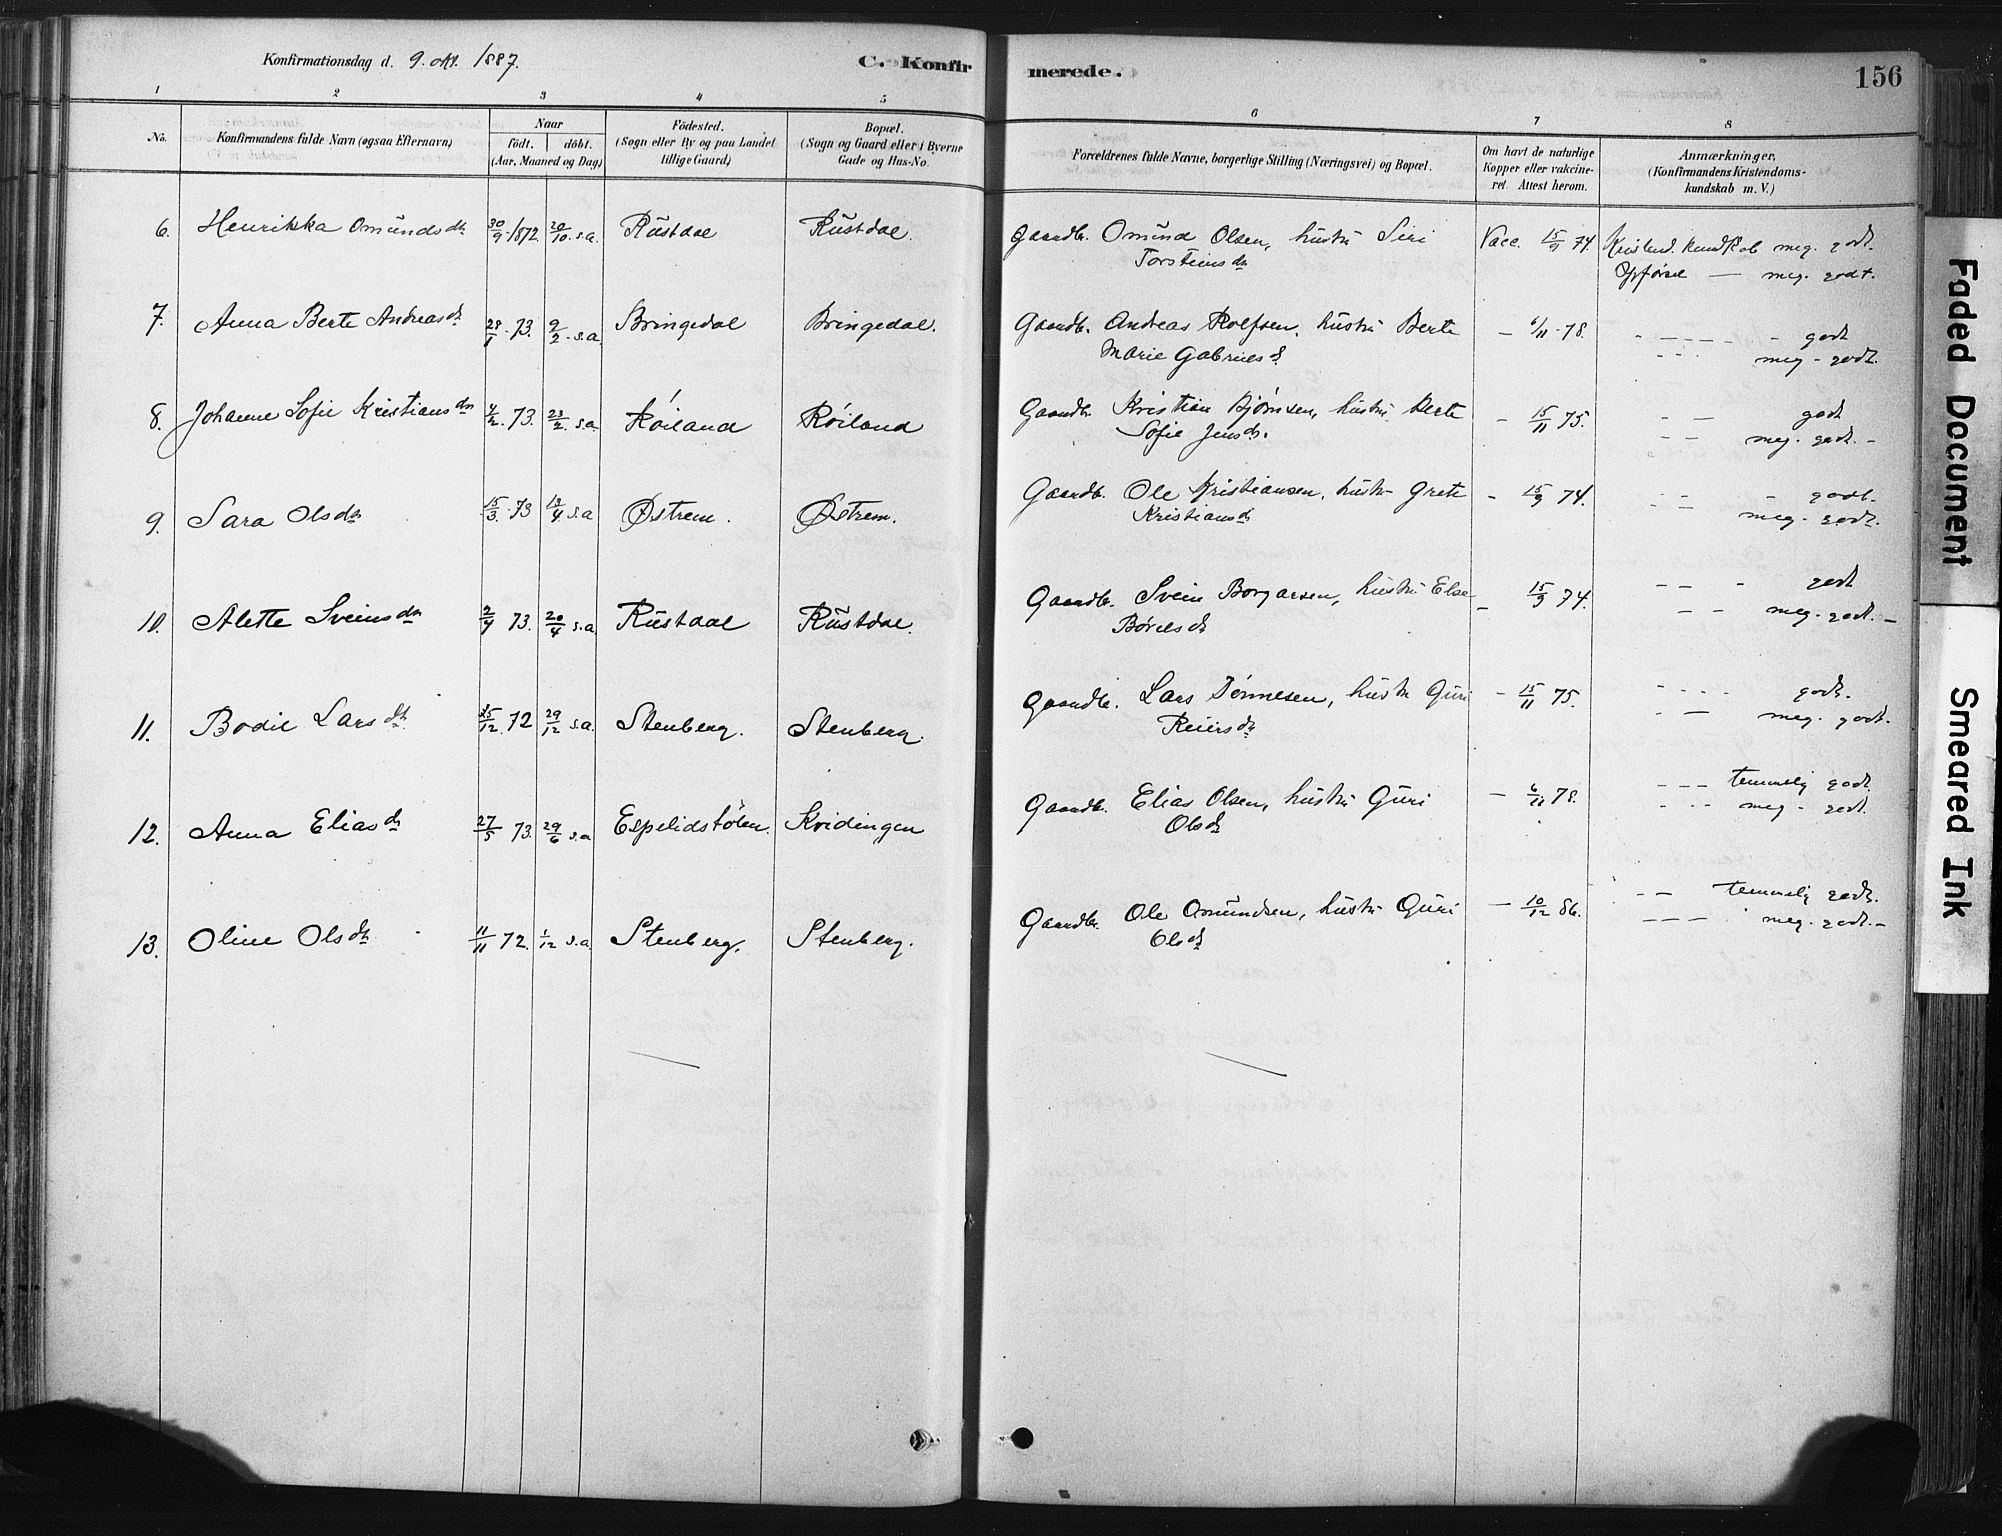 Konfirmationsdag d. 9. okt. 1887.
C. Konfirmerede.
156
1 2 3 4 5 6 7 8
No.
Konfirmandens fulde Navn (ogsaa Efternavn)
Naar
födt. döbt.
(Aar, Maaned og Dag)
Födested.
(Sogn eller By og paa Landet
tillige Gaard)
Bopæl.
(Sogn og Gaard eller i Byerne
Gade og Hus-No.
Forældrenes fulde Navne, borgerlige Stilling (Næringsvei) og Bopæl.
Om havt de naturlige
Kopper eller vakcine-
ret. Attest herom.
Anmærkninger,
(Konfirmandens Kristendoms-
kundskab m. V.)
6. Henrikka Omundsdtr 30/9 1872 20/10 s.a. Rüstdal Rüstdal. Gaardbr. Omünd Olsen, hüstrü Siri Vacc. 15/9 74 Kristend. kundskab meg. godt.
Torsteinsdtr Opførsel — meg. godt.
7. Anna Berte Andreasdtr 28/1 73. 9/2 s.a. Bringedal Bringedal. Gaardbr. Andreas Rolfsen, hüstrü Berte – 6/11 78. – – – – – godt
Marie Gabrielsd. – – – meg - godt.
8. Johanne Sofie Kristiansdtr 4/2 73. 23/2 s.a. Röiland Röiland Gaardbr. Kristian Bjørnsen, hüstrü Berte – 15/11 75. – – godt
Sofie Jensd. – – meg. godt. –
9. Sara Olsdtr 15/3 73 13/4 s.a. Østrem. Østrem. Gaardbr. Ole Kristiansen, hüstrü Grete – 15/9 74. – – – godt.
Kristiansd – – meg. godt.
10. Alette Sveinsdtr 2/4 73. 20/4 s.a. Rüstdal Rüstdal. Gaardbr. Svein Borgarsen, hüstrü Else – 15/9 74. – – – godt
Børilsdtr – – meg. godt. –
11. Bodil Larsdtr 12. 72 29/12 s.a. Stenberg. Stenberg. Gaardbr. Lars Tønnesen, hüstrü Güri – 15/11 75. – – – – godt.
Reiersdtr – — meg. godt.
12. Anna Eliasdtr 27/5 73. 29/6 s.a. Espelidstölen. Kvidingen Gaardbr. Elias Olsen, hüstrü Güri – 6/11 78. – – – temmelig godt.
Olsdtr – – – meg - godt.
13. Oline Olsdtr 11/11 72. 1/12 s.a. Stenberg. Stenberg. Gaardbr. Ole Omündsen, hüstrü Güri – 10/12 86. – — temmelig godt.
Olsdtr – – – meg. godt. –
Faded Document
Smeared Ink